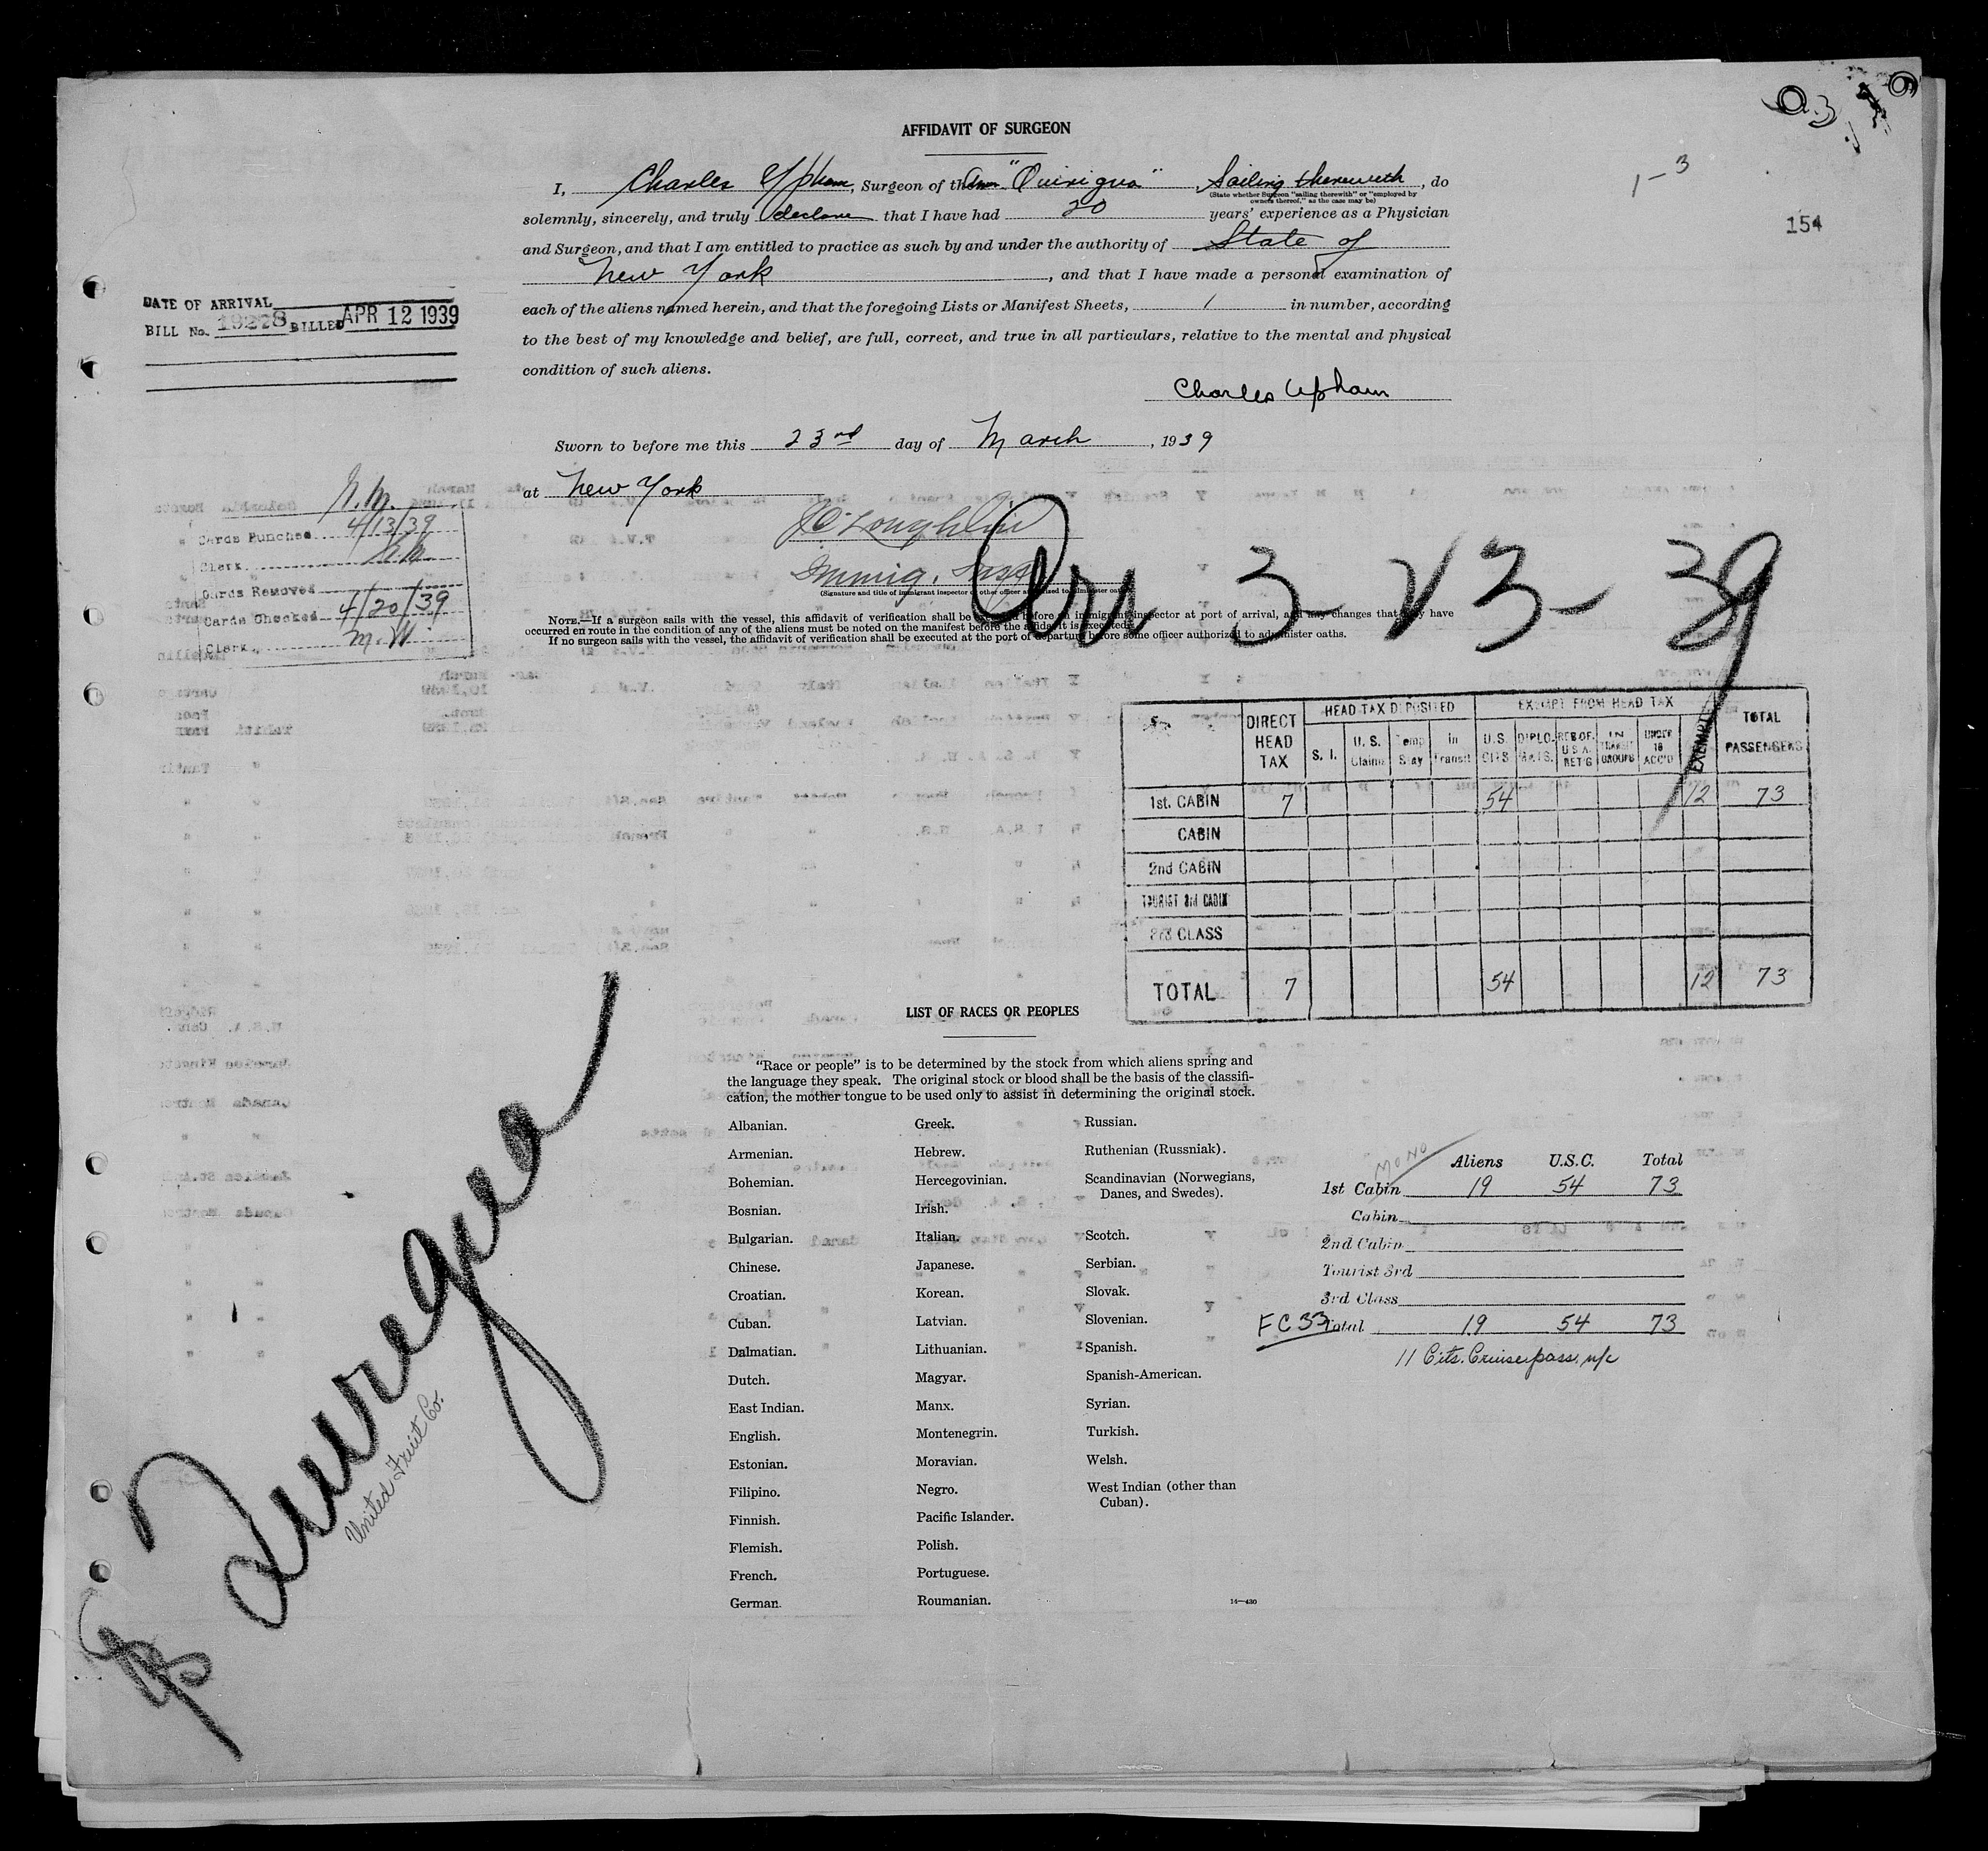 AFFIDAVIT OF SURGEON
1-3
154
I, Charles Upham, Surgeon of the Amn "Quirigua" Sailing therewith, do
(State whether Surgeon "sailing therewith" or "employed by
owners thereof," as the case may be)
solemnly, sincerely, and truly declare that I have had 20 years' experience as a Physician
and Surgeon, and that I am entitled to practice as such by and under the authority of State of
New York, and that I have made a personal examination of
each of the aliens named herein, and that the foregoing Lists or Manifest Sheets, 1 in number, according
to the best of my knowledge and belief, are full, correct, and true in all particulars, relative to the mental and physical
condition of such aliens.
Charles Upham
Sworn to before me this 23rd day of March, 1939
at New York
J O'Loughlin
Immig. Insp
(Signature and title of immigrant inspector or other officer authorized to administer oaths)
Arr 3-23-39
NOTE.—If a surgeon sails with the vessel, this affidavit of verification shall be executed before an immigrant inspector at port of arrival, and any changes that may have
occurred en route in the condition of any of the aliens must be noted on the manifest before the affidavit is executed.
If no surgeon sails with the vessel, the affidavit of verification shall be executed at the port of departure before some officer authorized to administer oaths.
DATE OF ARRIVAL
BILL No. 19278 BILLED APR 12 1939
N.M.
Cards Punched 4/13/39
Clerk
Cards Removed
Cards Checked 4/20/39
Clerk M.W.
DIRECT HEAD TAX
HEAD TAX DEPOSITED
EXEMPT FROM HEAD TAX
TOTAL PASSENGERS
S. I. U. S. Claims Temp Stay In Transit U.S. CITS DIPLOMATS. RES OF U.S.A. RET'G IN TRANSIT GROUPS UNDER 16 ACC'D EXEMPT
1st. CABIN 7 54 12 73
CABIN
2nd CABIN
TOURIST 3rd CABIN
3rd CLASS
TOTAL 7 54 12 73
LIST OF RACES OR PEOPLES
"Race or people" is to be determined by the stock from which aliens spring and
the language they speak. The original stock or blood shall be the basis of the classifi-
cation, the mother tongue to be used only to assist in determining the original stock.
Albanian.
Armenian.
Bohemian.
Bosnian.
Bulgarian.
Chinese.
Croatian.
Cuban.
Dalmatian.
Dutch.
East Indian.
English.
Estonian.
Filipino.
Finnish.
Flemish.
French.
German.
Greek.
Hebrew.
Hercegovinian.
Irish.
Italian.
Japanese.
Korean.
Latvian.
Lithuanian.
Magyar.
Manx.
Montenegrin.
Moravian.
Negro.
Pacific Islander.
Polish.
Portuguese.
Roumanian.
Russian.
Ruthenian (Russniak).
Scandinavian (Norwegians,
Danes, and Swedes).
Scotch.
Serbian.
Slovak.
Slovenian.
Spanish.
Spanish-American.
Syrian.
Turkish.
Welsh.
West Indian (other than
Cuban).
14—430
MONO
Aliens U.S.C. Total
1st Cabin 19 54 73
Cabin
2nd Cabin
Tourist 3rd
3rd Class
FC 33
Total 19 54 73
11 Cits. Cruise pass. n/c
SS Quirigua
United Fruit Co.